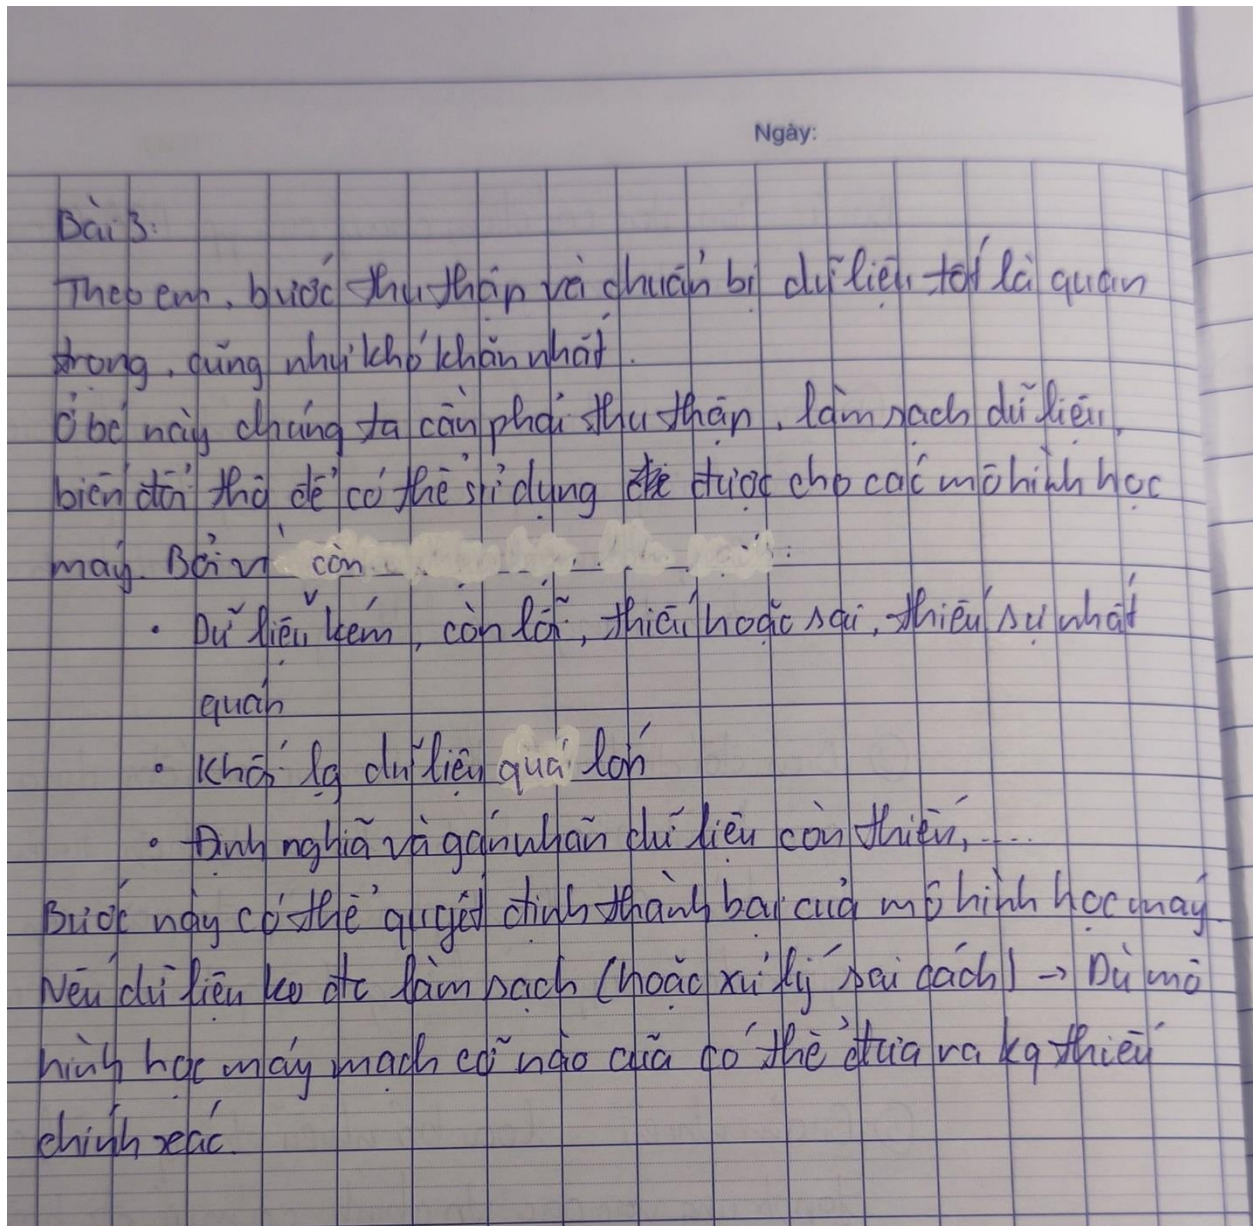 Ngày:
Bài 3:
Theo em, bước thu thập và chuẩn bị dữ liệu tốt là quan
trọng, cũng như khó khăn nhất.
Ở bc này chúng ta cần phải thu thập, làm sạch dữ liệu,
biến đổi thô để có thể sử dụng được cho các mô hình học
máy. Bởi vì còn
• Dữ liệu kém, còn lỗi, thiếu hoặc sai, thiếu sự nhất
quán
• Khối lg dữ liệu quá lớn
• Định nghĩa và gán nhãn dữ liệu còn thiếu, ....
Bước này có thể quyết định thành bại của mô hình học máy.
Nếu dữ liệu ko đc làm sạch (hoặc xử lý sai cách) → Dù mô
hình học máy mạch cỡ nào cũng có thể đưa ra kq thiếu
chính xác.